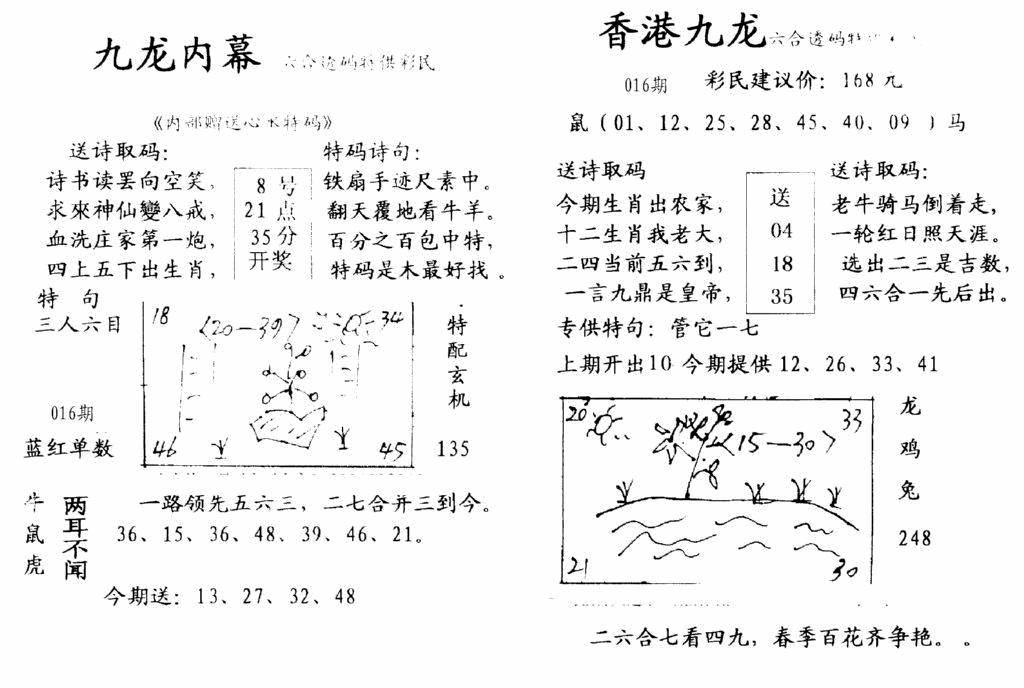 九龙内幕 六合透码特供彩民
《内部赠送心水特码》
送诗取码：
诗书读罢向空笑，
求來神仙變八戒，
血洗庄家第一炮，
四上五下出生肖，
8 号
21 点
35 分
开奖
特码诗句：
铁扇手迹尺素中。
翻天覆地看牛羊。
百分之百包中特，
特码是木最好找。
特 句
三人六目
016期
蓝红单数
18
〈20—39〉
34
46
45
特配玄机
135
牛
鼠
虎
两耳不闻
一路领先五六三，二七合并三到今。
36、15、36、48、39、46、21。
今期送：13、27、32、48
香港九龙 六合透码特
016期 彩民建议价：168 元
鼠（01、12、25、28、45、40、09 ）马
送诗取码
今期生肖出农家，
十二生肖我老大，
二四当前五六到，
一言九鼎是皇帝，
送
04
18
35
送诗取码：
老牛骑马倒着走，
一轮红日照天涯。
选出二三是吉数，
四六合一先后出。
专供特句：管它一七
上期开出10 今期提供 12、26、33、41
20
33
〈15—30〉
21
30
龙
鸡
兔
248
二六合七看四九，春季百花齐争艳。 。